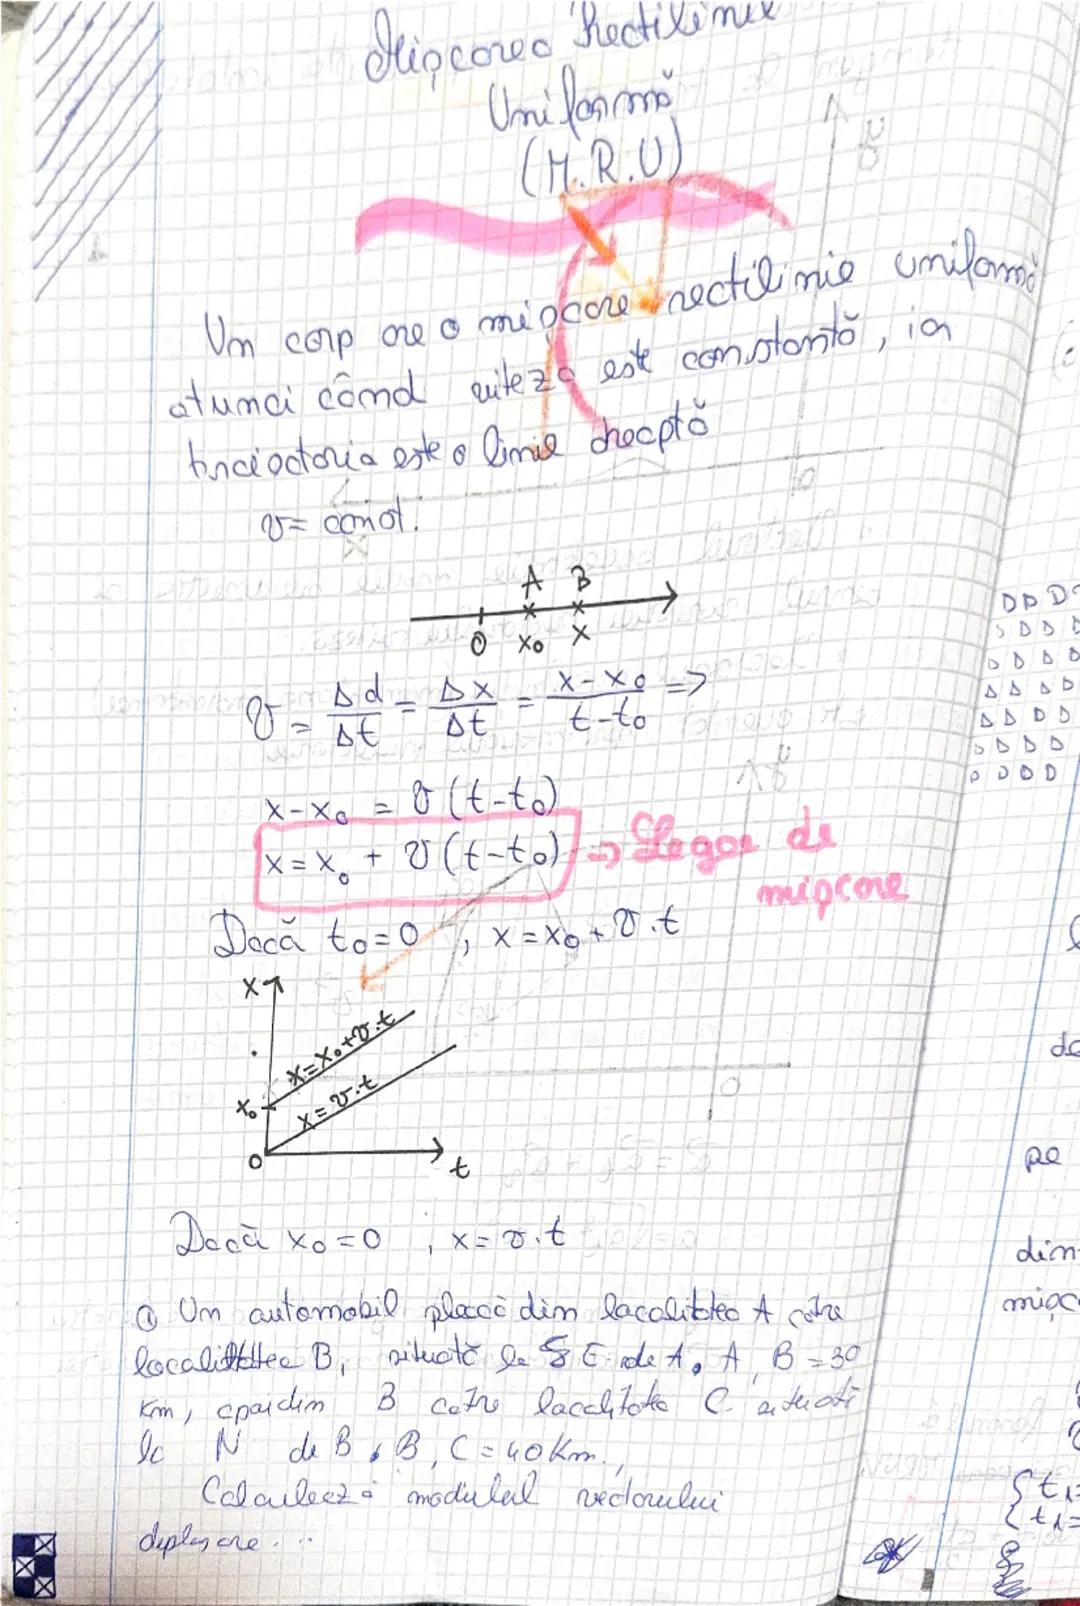 Mișcarea Rectilinie
Uniformă
(M.R.U)
Un corp are o mișcare rectilinie uniformă
atunci când viteza este constantă, iar
traiectoria este o linie dreaptă
v = const.
A B
O x₀ x
v = Δd/Δt = Δx/Δt = x-x₀/t-t₀ =>
x-x₀ = v(t-t₀)
x = x₀ + v(t-t₀) => Legea de
mișcare
Dacă t₀=0, x=x₀+v.t
x
x=x₀+v.t
x₀ x=v.t
0 t
Dacă x₀=0, x=v.t
① Un automobil pleacă din localitatea A către
localitatea B, situată la E de A, A, B=30
km, apoi din B către localitatea C situată
la N de B, B, C=40 km.,
Calculează modulul vectorului
deplasare...